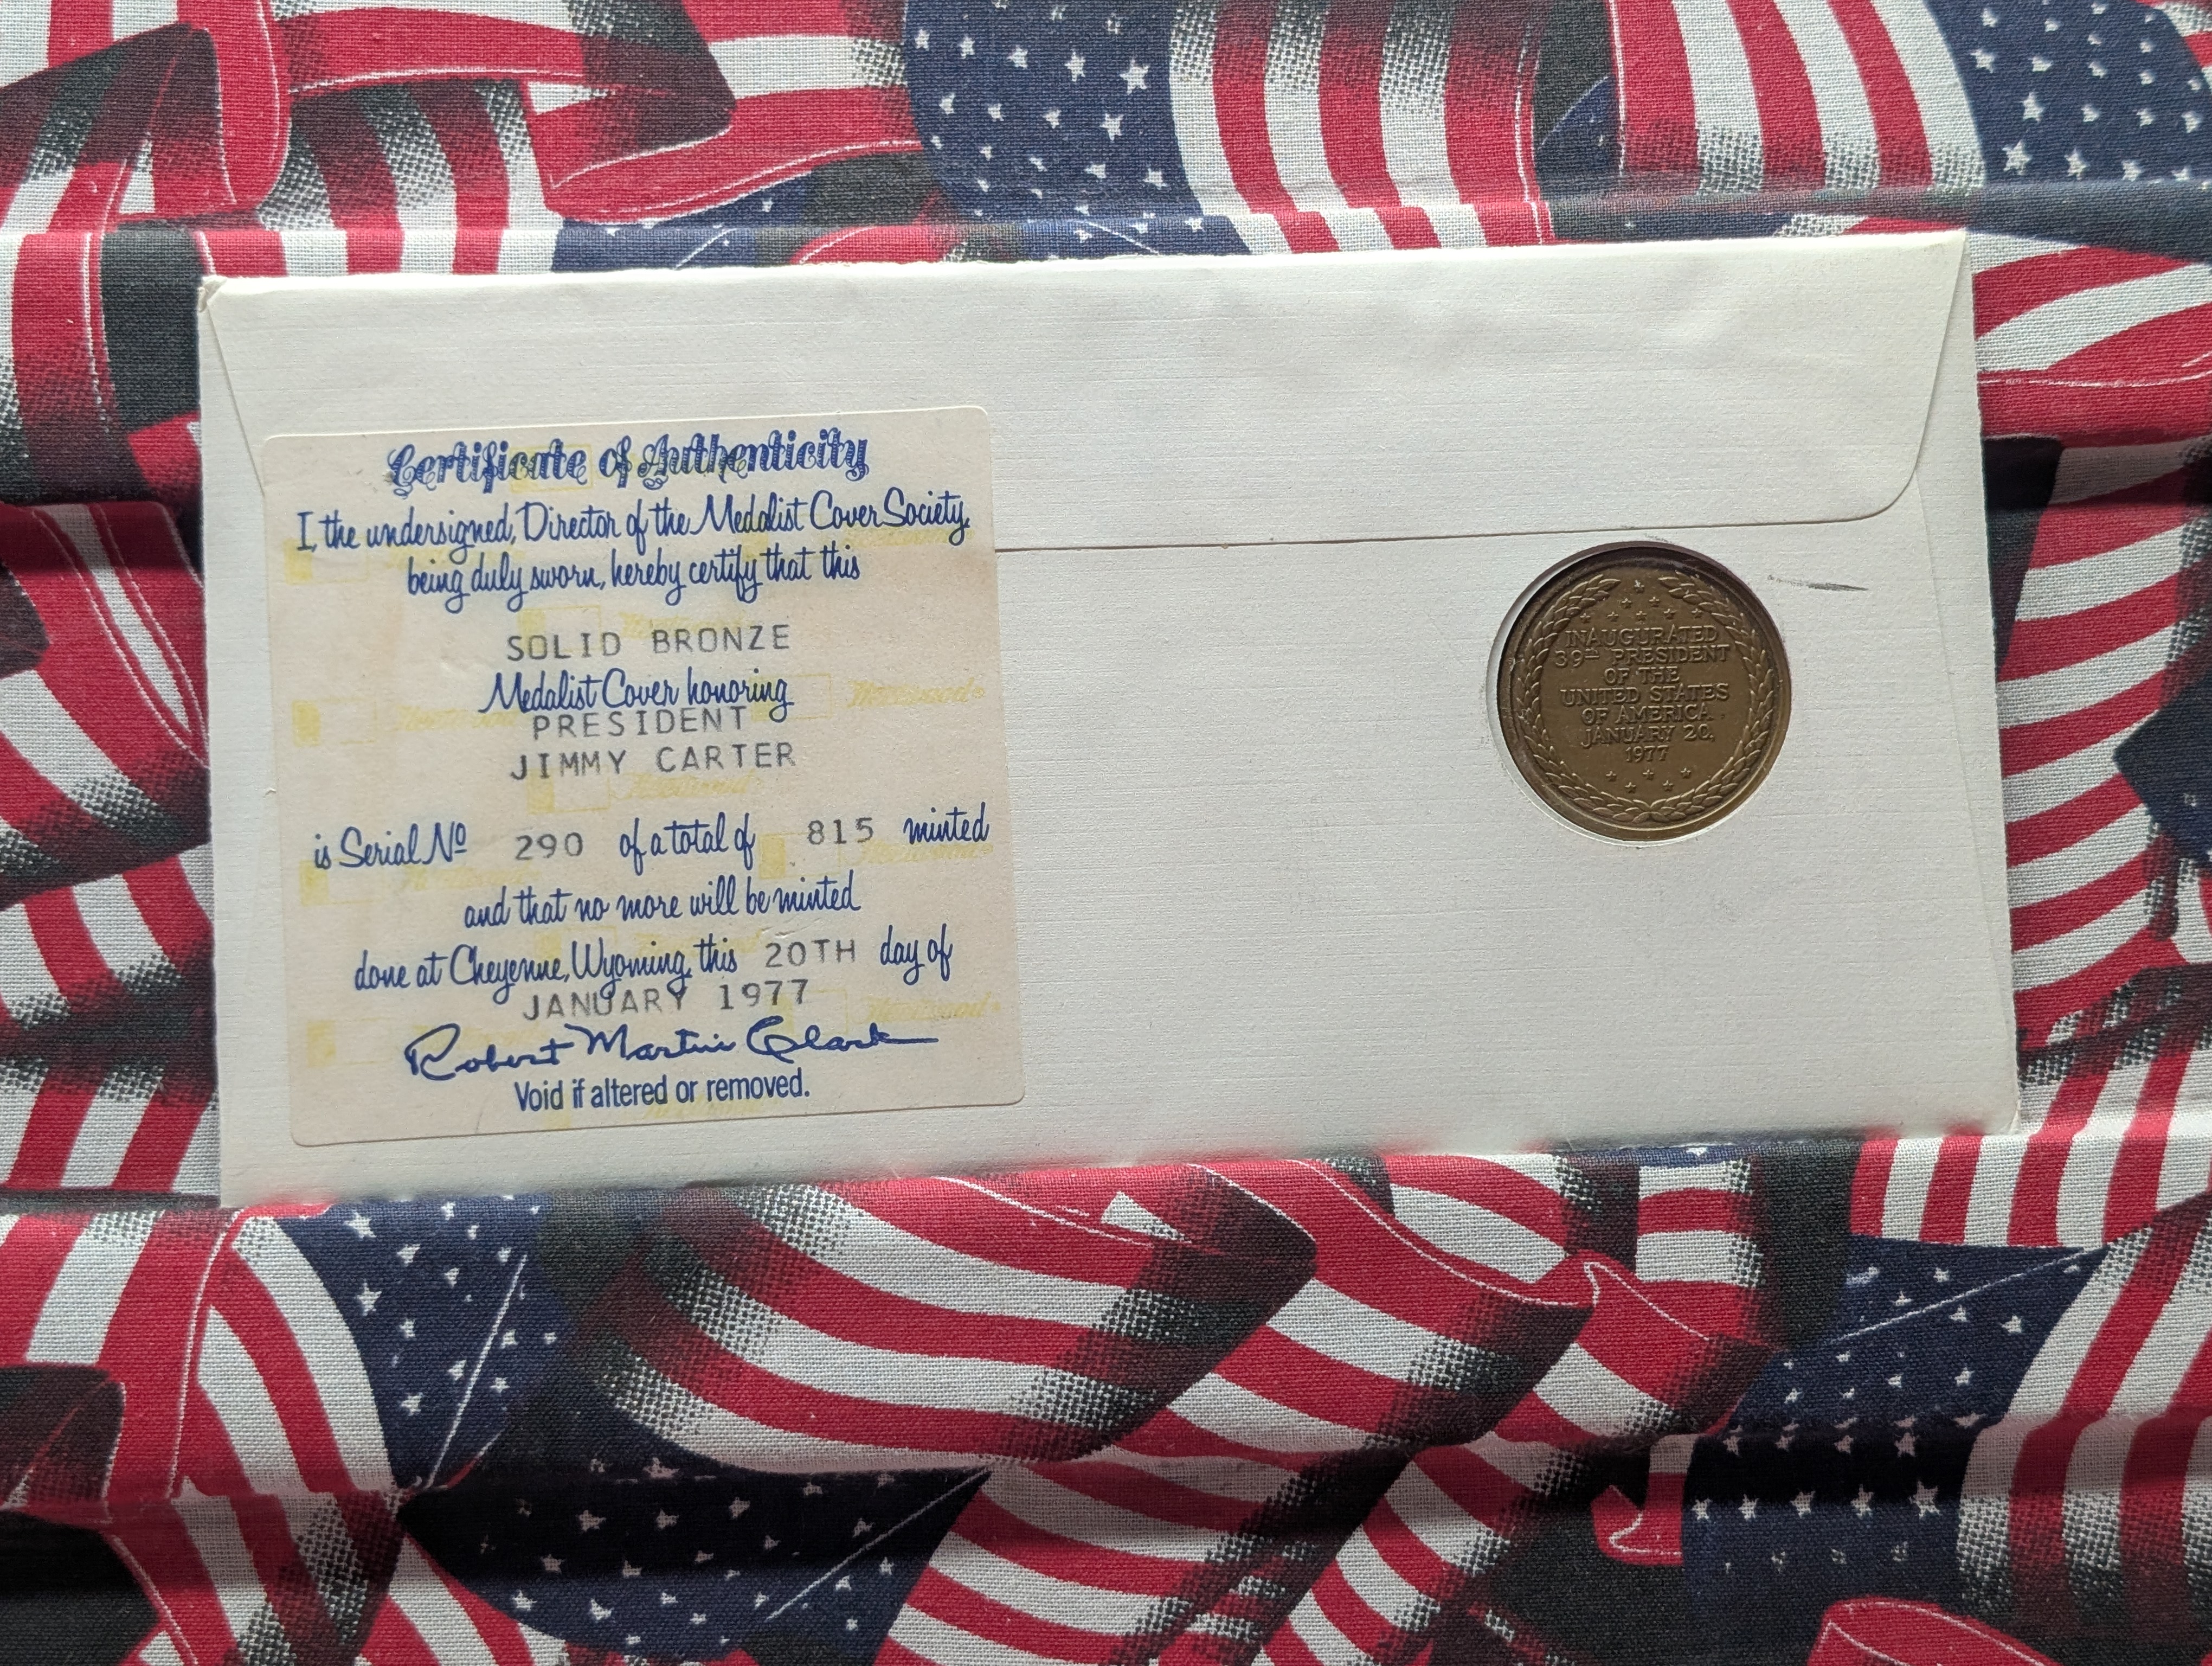 Certificate of Authenticity
I, the undersigned, Director of the Medalist Cover Society,
being duly sworn, hereby certify that this
SOLID BRONZE
Medalist Cover honoring
PRESIDENT
JIMMY CARTER
is Serial Nº 290 of a total of 815 minted
and that no more will be minted
done at Cheyenne, Wyoming, this 20TH day of
JANUARY 1977
Robert Martin Clark
Void if altered or removed.
INAUGURATED
39TH PRESIDENT
OF THE
UNITED STATES
OF AMERICA
JANUARY 20,
1977